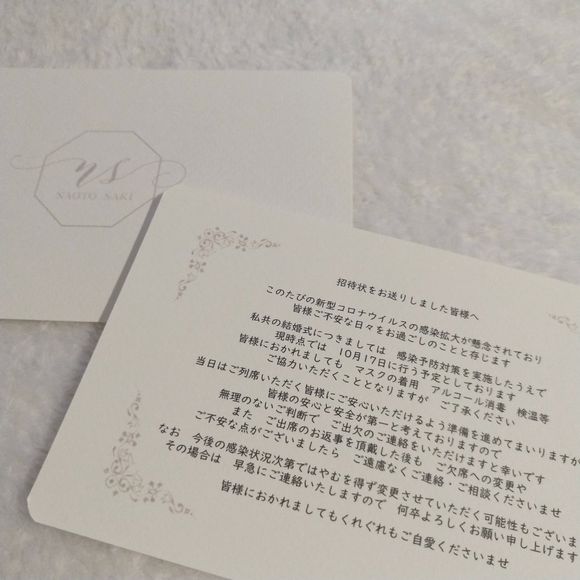 ns
NAOTO SAKI
招待状をお送りしました皆様へ
このたびの新型コロナウイルスの感染拡大が懸念されており
皆様ご不安な日々をお過ごしのことと存じます
私共の結婚式につきましては 感染予防対策を実施したうえで
現時点では 10月17日に行う予定としております
皆様におかれましても マスクの着用 アルコール消毒 検温等
ご協力いただくこととなりますが ご了承ください
当日はご列席いただく皆様にご安心いただけるよう準備を進めてまいりますが
皆様の安心と安全が第一と考えておりますので
無理のないご判断で ご出欠のご連絡をいただけますと幸いです
また ご出席のお返事を頂戴した後も ご欠席への変更や
ご不安な点がございましたら ご遠慮なくご連絡・ご相談くださいませ
なお 今後の感染状況次第ではやむを得ず変更させていただく可能性もございま
その場合は 早急にご連絡いたしますので 何卒よろしくお願い申し上げます
皆様におかれましてもくれぐれもご自愛くださいませ